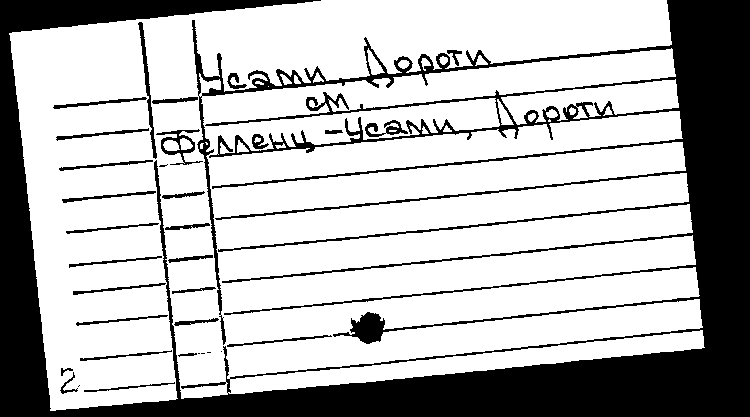 Усами, Дороти
см.
Фелленц-Усами, Дороти
2